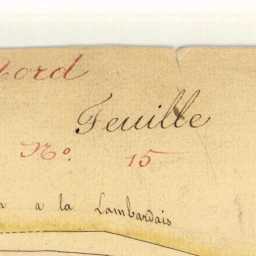 Nord
Feuille
No. 15
a la Lambardais